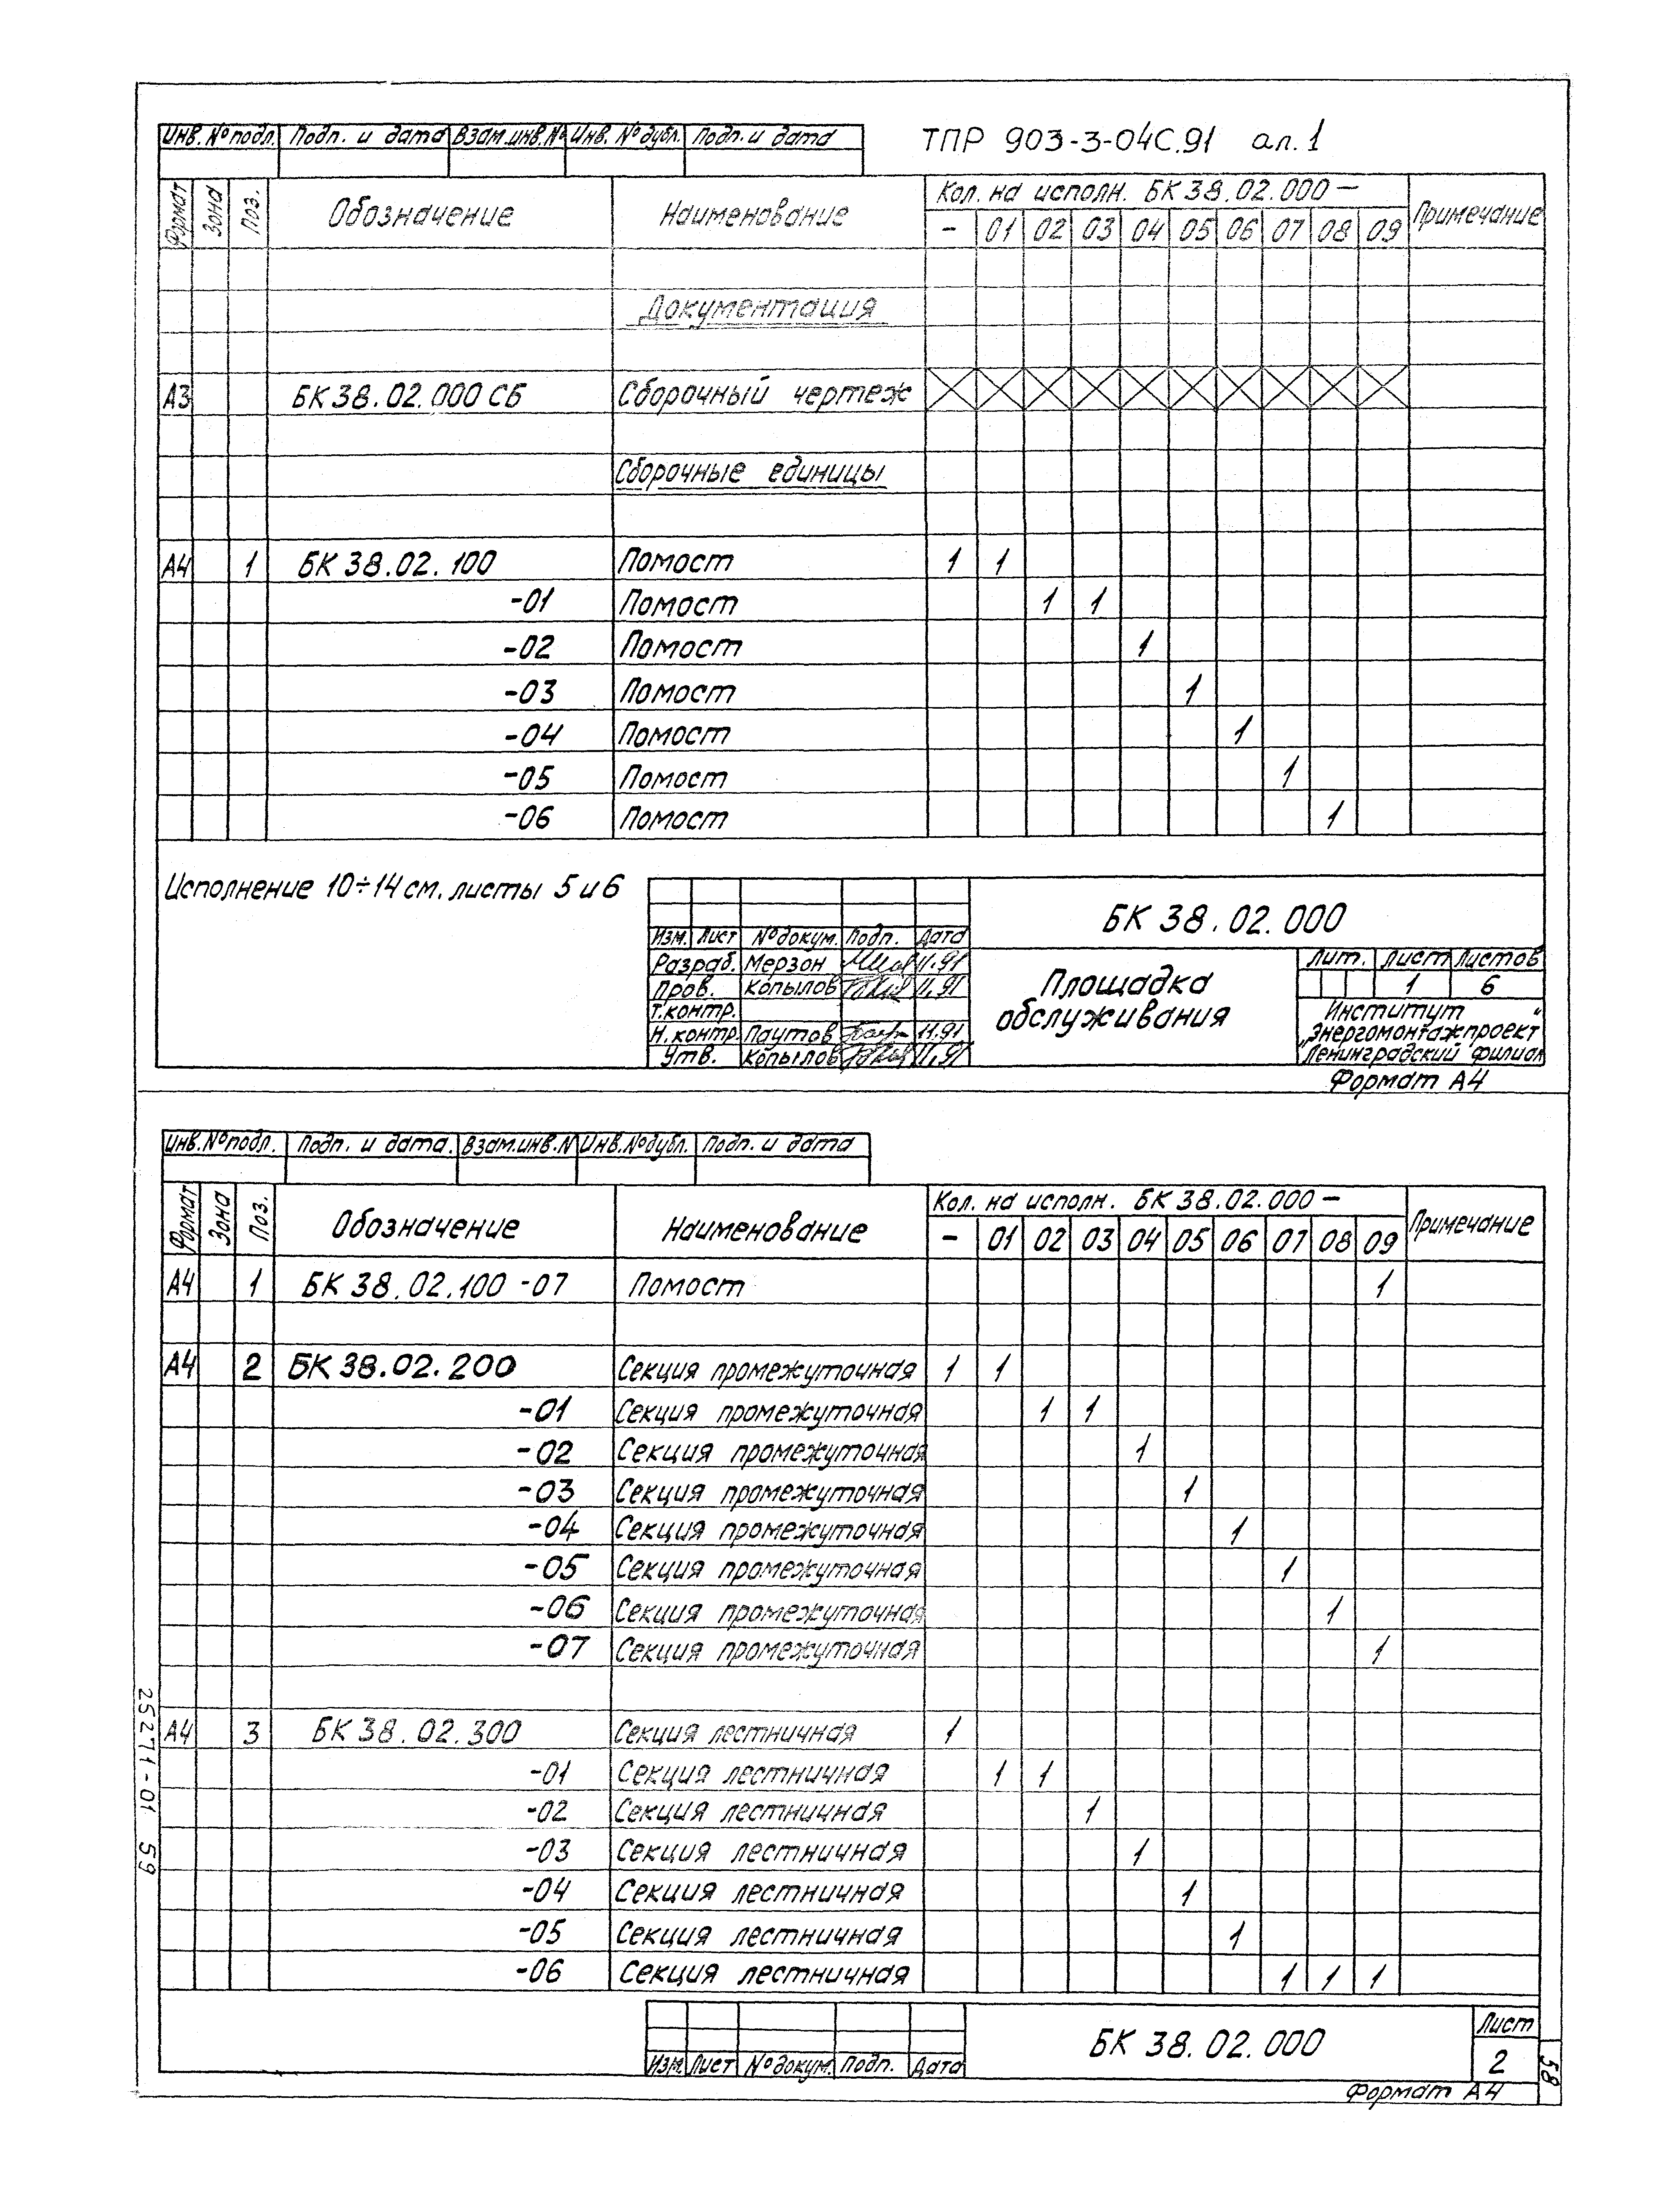 ТПР 903-3-04С.91 ал.1
Инв. № подл. Подп. и дата Взам.инв.№ Инв. № дубл. Подп. и дата
Формат Зона Поз. Обозначение Наименование Кол. на исполн. БК 38.02.000 — Примечание
- 01 02 03 04 05 06 07 08 09
Документация
А3 БК 38.02.000 СБ Сборочный чертеж
Сборочные единицы
А4 1 БК 38.02.100 Помост 1 1
-01 Помост 1 1
-02 Помост 1
-03 Помост 1
-04 Помост 1
-05 Помост 1
-06 Помост 1
Исполнение 10÷14 см. листы 5 и 6
БК 38.02.000
Изм. Лист № докум. Подп. Дата
Разраб. Мерзон 11.91
Пров. Копылов 11.91
Т.контр.
Н.контр. Паутов 11.91
Утв. Копылов 11.91
Площадка
обслуживания
Лит. Лист Листов
1 6
Институт
„Энергомонтажпроект“
Ленинградский филиал
Формат А4
Инв.№ подл. Подп. и дата. Взам.инв.№ Инв.№дубл. Подп. и дата
Формат Зона Поз. Обозначение Наименование Кол. на исполн. БК 38.02.000 — Примечание
- 01 02 03 04 05 06 07 08 09
А4 1 БК 38.02.100 -07 Помост 1
А4 2 БК 38.02.200 Секция промежуточная 1 1
-01 Секция промежуточная 1 1
-02 Секция промежуточная 1
-03 Секция промежуточная 1
-04 Секция промежуточная 1
-05 Секция промежуточная 1
-06 Секция промежуточная 1
-07 Секция промежуточная 1
А4 3 БК 38.02.300 Секция лестничная 1
-01 Секция лестничная 1 1
-02 Секция лестничная 1
-03 Секция лестничная 1
-04 Секция лестничная 1
-05 Секция лестничная 1
-06 Секция лестничная 1 1 1
Изм. Лист № докум. Подп. Дата
БК 38.02.000
Лист
2
Формат А4
25271-01 59
58